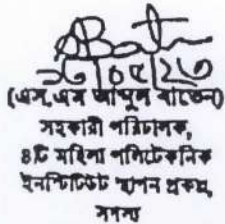 ১৩/০৫/২৩
(এস,এম আবুল বাতেন)
সহকারী পরিচালক,
৪টি মহিলা পলিটেকনিক
ইনস্টিটিউট স্থাপন প্রকল্প,
সদস্য